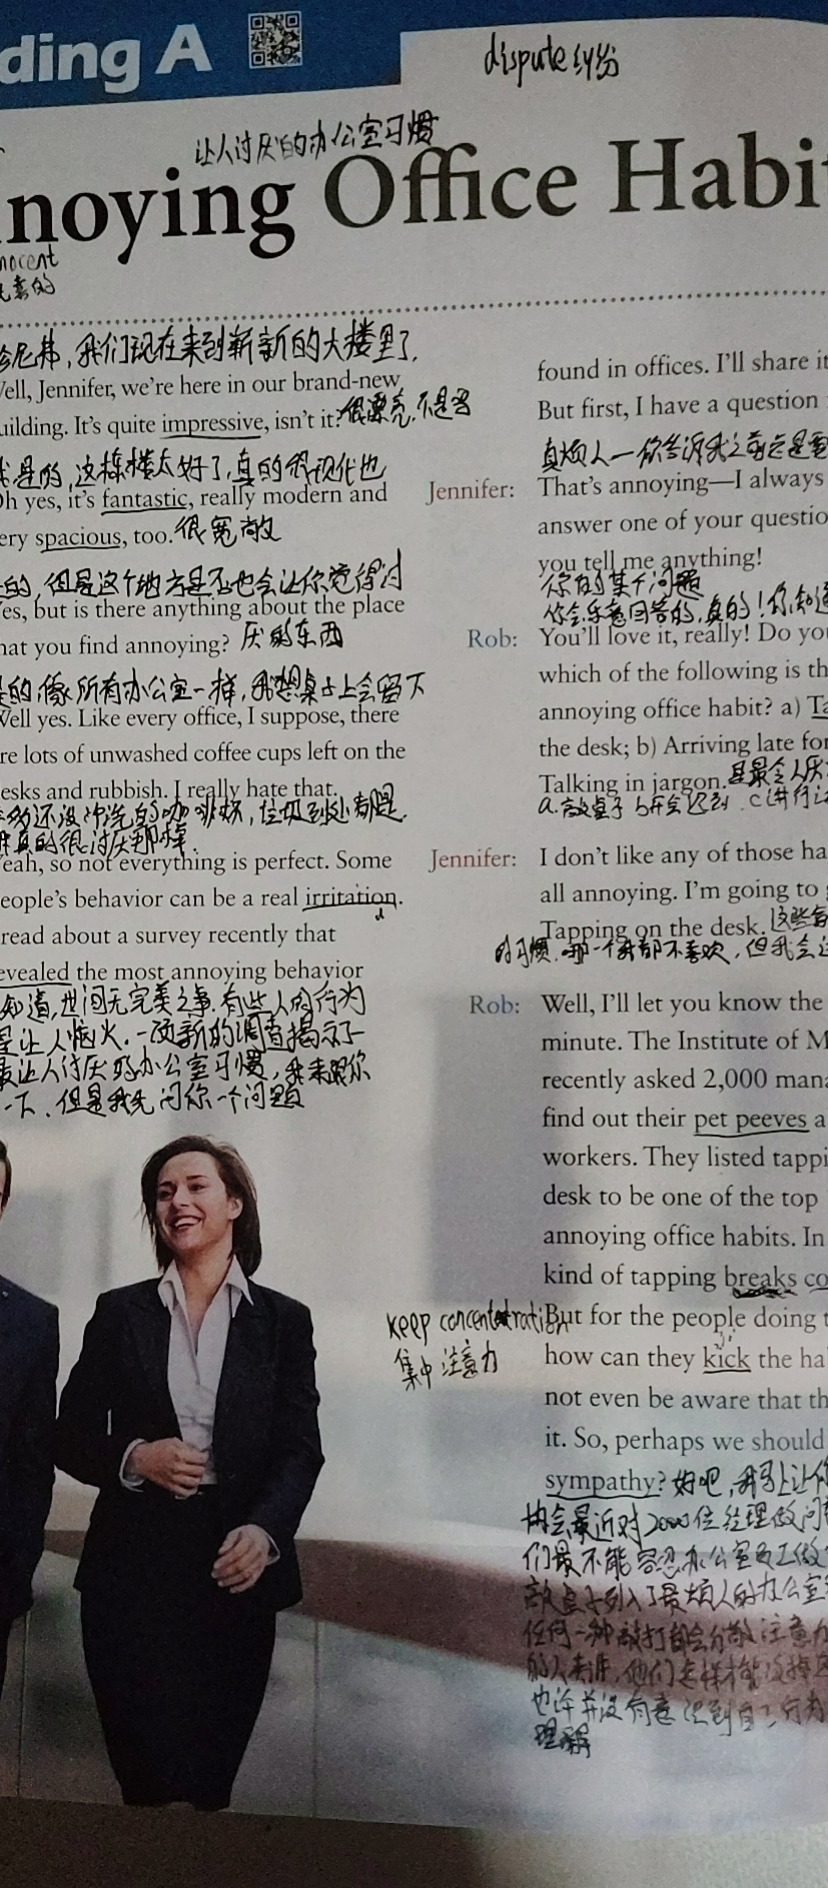 ding A
dispute 纠纷
让人讨厌的办公室习惯
nnoying Office Habi
nocent
尼弗，我们现在来到崭新的大楼里了.
ell, Jennifer, we're here in our brand-new
uilding. It's quite impressive, isn't it? 很漂亮，不是吗
是的，这栋楼太好了，真的很现代也
h yes, it's fantastic, really modern and
ery spacious, too. 很宽敞
的，但是这个地方是否也会让你觉得讨
es, but is there anything about the place
hat you find annoying? 厌的东西
是的，像所有办公室一样，我想桌子上会留下
Well yes. Like every office, I suppose, there
re lots of unwashed coffee cups left on the
esks and rubbish. I really hate that.
多还没冲洗的咖啡杯，垃圾到处都是.
真的很讨厌那样.
eah, so not everything is perfect. Some
eople's behavior can be a real irritation.
read about a survey recently that
evealed the most annoying behavior
知道，世间无完美之事. 有些人的行为
是让人恼火. 一项新的调查揭示了一
最让人讨厌的办公室习惯，我来跟你
一下. 但是我先问你一个问题
found in offices. I'll share it
But first, I have a question
真烦人—你告诉我之前总是要
Jennifer: That's annoying—I always
answer one of your questio
you tell me anything!
你的某个问题
你会乐意回答的，真的！你知道
Rob: You'll love it, really! Do you
which of the following is th
annoying office habit? a) Ta
the desk; b) Arriving late for
Talking in jargon. 是最令人厌
a.敲桌子 b开会迟到 .c讲行话
Jennifer: I don't like any of those ha
all annoying. I'm going to
Tapping on the desk. 这些
的习惯，哪一个我都不喜欢，但我会
Rob: Well, I'll let you know the
minute. The Institute of M
recently asked 2,000 mana
find out their pet peeves a
workers. They listed tappi
desk to be one of the top
annoying office habits. In
kind of tapping breaks co
keep concentration
But for the people doing t
集中注意力
how can they kick the ha
not even be aware that th
it. So, perhaps we should
sympathy? 好吧，我马上让你
协会最近对2000位经理做问
们最不能容忍办公室员工做
敲桌子列入了最烦人的办公室
任何一种敲打都会分散注意力
的人来讲，他们怎样才能改掉
也许并没有意识到自己行为
理解